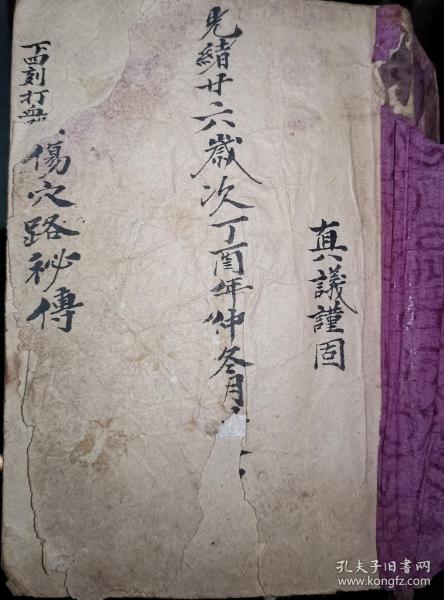 真議謹固
光緒廿六歲次丁酉年仲冬月
傷穴路祕傳
酉刻打
孔夫子旧书网
book.kongfz.com